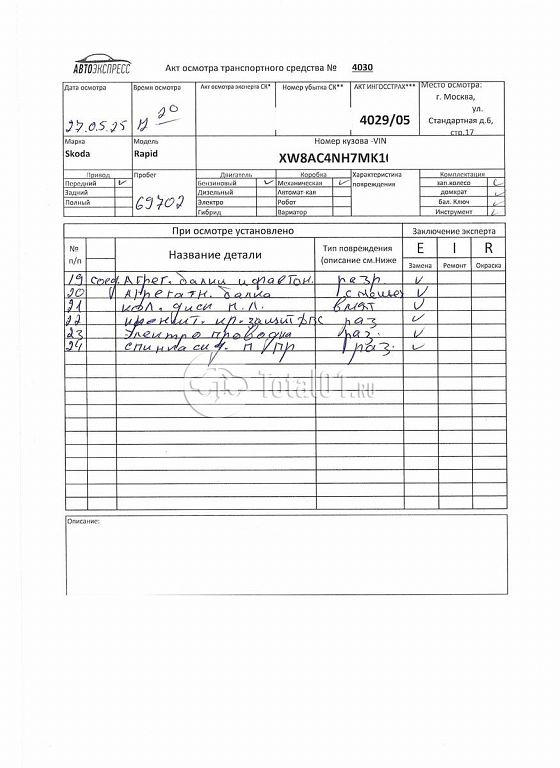 АВТОЭКСПРЕСС
Акт осмотра транспортного средства № 4030
Дата осмотра Время осмотра Акт осмотра эксперта СК* Номер убытка СК** АКТ ИНГОССТРАХ*** Место осмотра:
г. Москва,
ул.
Стандартная д.6,
стр.17
27.05.25 20 4029/05
Марка Модель Номер кузова -VIN
Skoda Rapid XW8AC4NH7MK1
Привод Пробег Двигатель Коробка Характеристика повреждения Комплектация
Передний Бензиновый Механическая зап.колесо
Задний Дизельный Автомат-кая домкрат
Полный 69702 Электро Робот бал. Ключ
Гибрид Вариатор Инструмент
При осмотре установлено Заключение эксперта
№ п/п Название детали Тип повреждения (описание см.Ниже E I R
Замена Ремонт Окраска
19 соед. Агрег. балки и разр.
20 Агрегатн. балка
21 диск
22 кр. раз
23 Электро проводка раз.
24 спинка сид. п/пр раз.
Total01.ru
Описание: